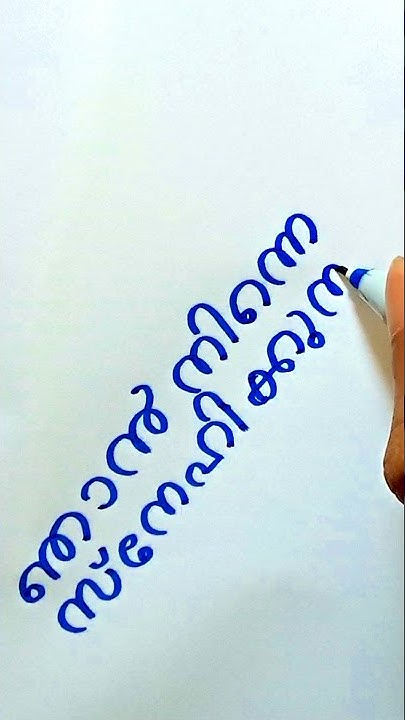 ഞാൻ നിന്നെ
സ്നേഹിക്കുന